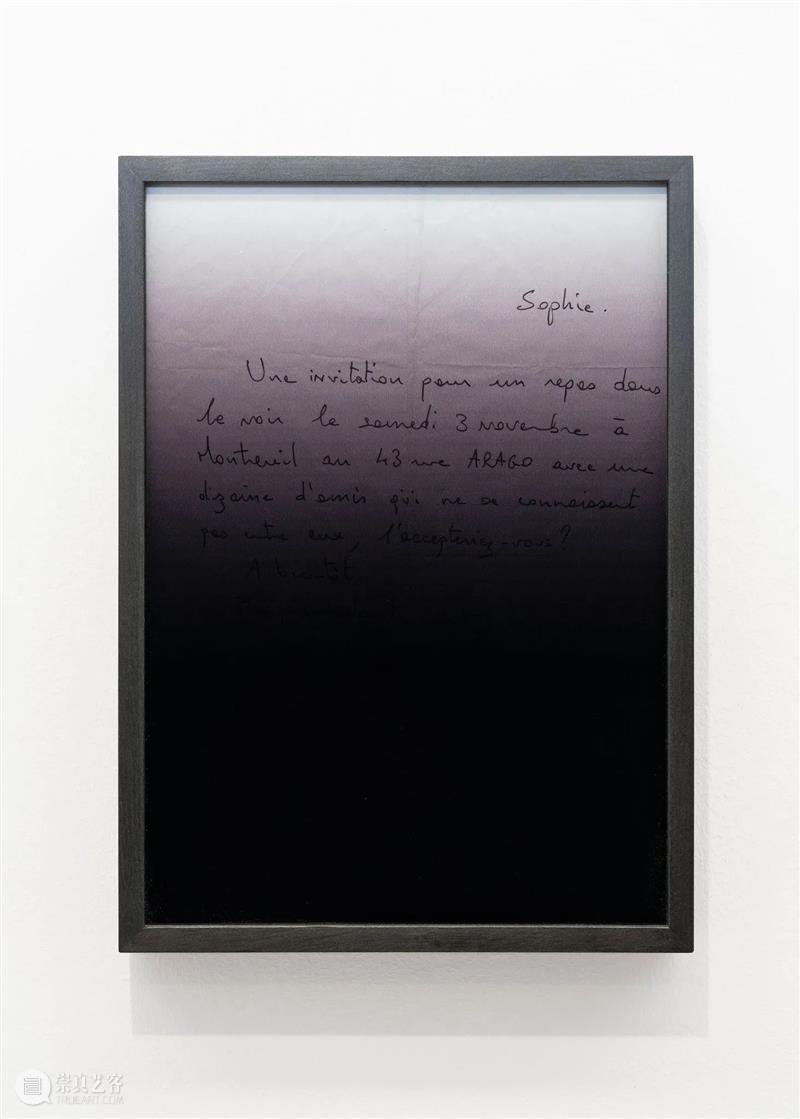 Sophie.
Une invitation pour un repas dans
le noir le samedi 3 novembre à
Montreuil au 43 rue ARAGO avec une
dizaine d'amis qui ne se connaissent
pas entre eux, l'accepteriez-vous?
A bientôt
崇真艺客
TRUEART.COM